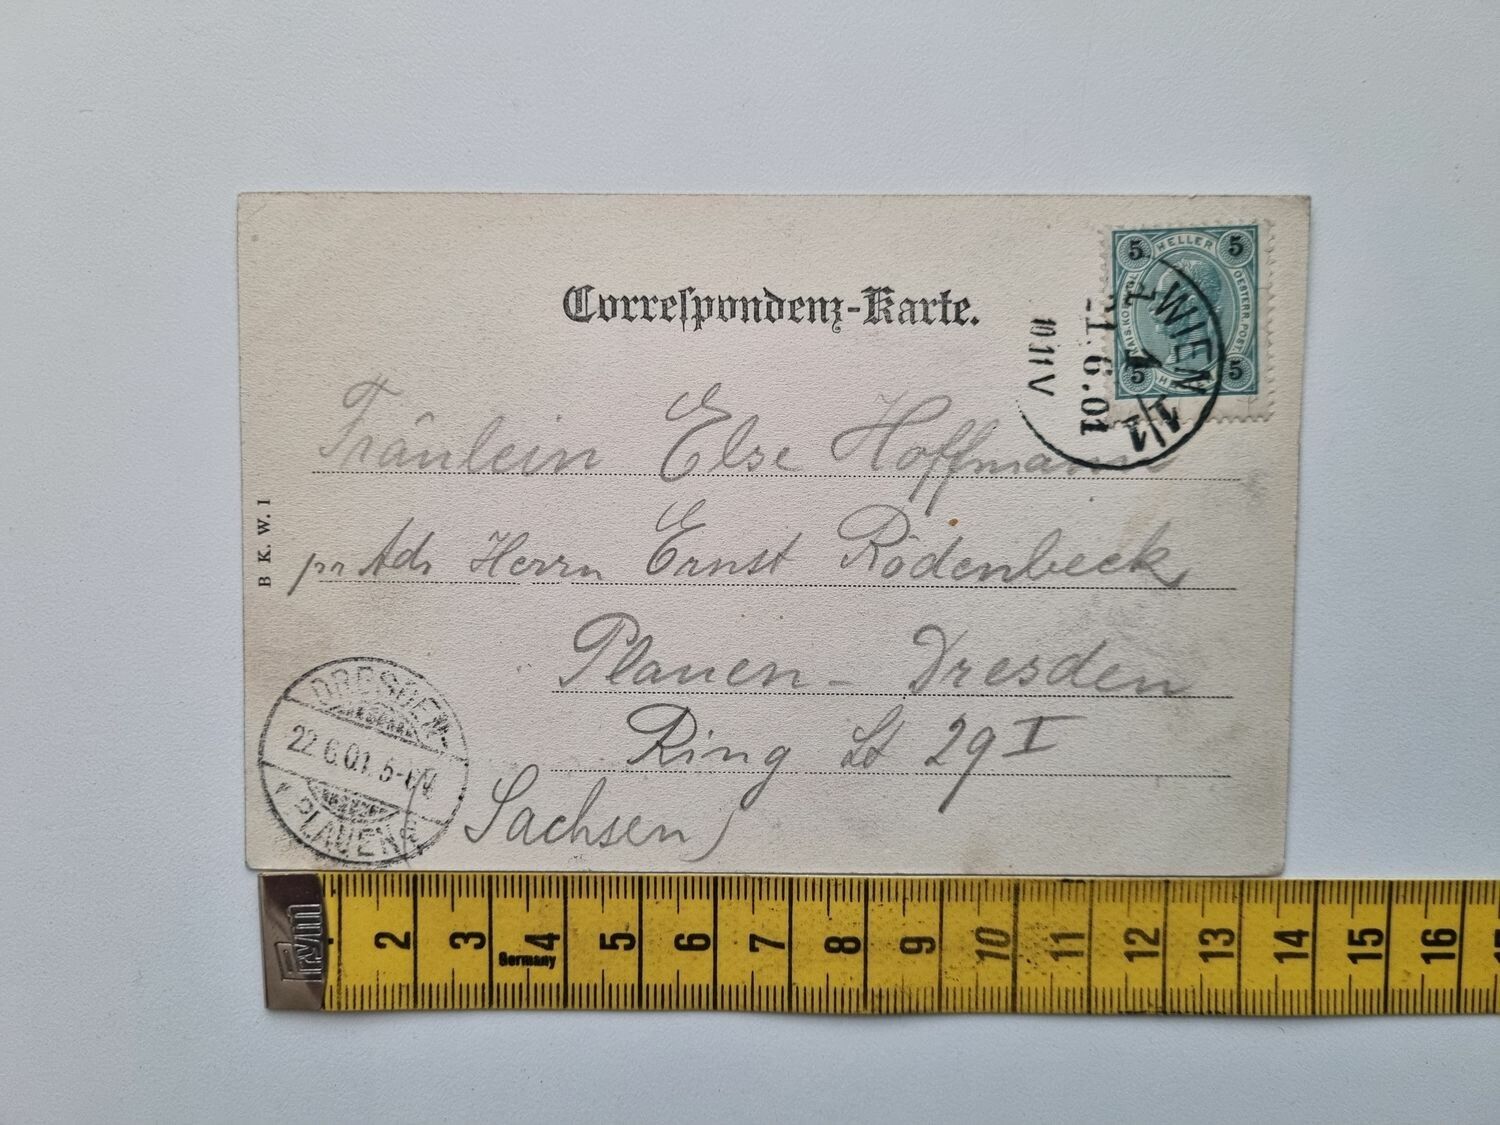 Correspondenz-Karte.
5 HELLER 5
KAIS. KÖNIGL.
OESTERR. POST.
5 5
WIEN 1/1
21.6.01
10 11 V
Fräulein Else Hoffmann
pr Adr Herrn Ernst Rödenbeck
Plauen - Dresden
Ring St 29 I
Sachsen)
B K. W. I
DRESDEN-
22.6.01. 5-6N
PLAUEN
Prym
2 3 4 5 6 7 8 9 10 11 12 13 14 15 16
Germany